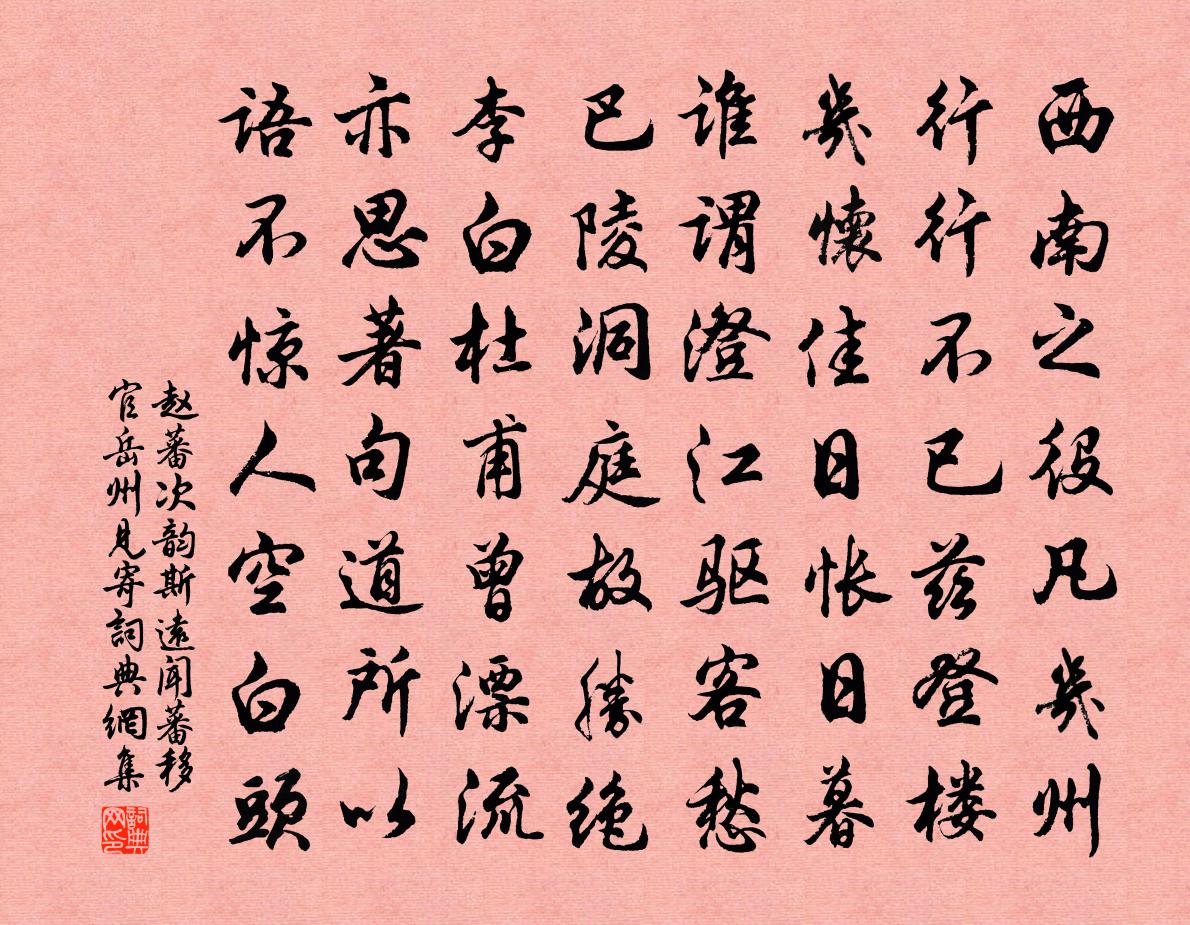 西南之役凡幾州
行行不已兹登楼
幾懷佳日怅日暮
谁谓澄江驱客愁
巴陵洞庭故勝绝
李白杜甫曾漂流
亦思著句道所以
语不惊人空白頭
赵蕃次韵斯遠闻蕃移
官岳州見寄詞典網集
詞典网印